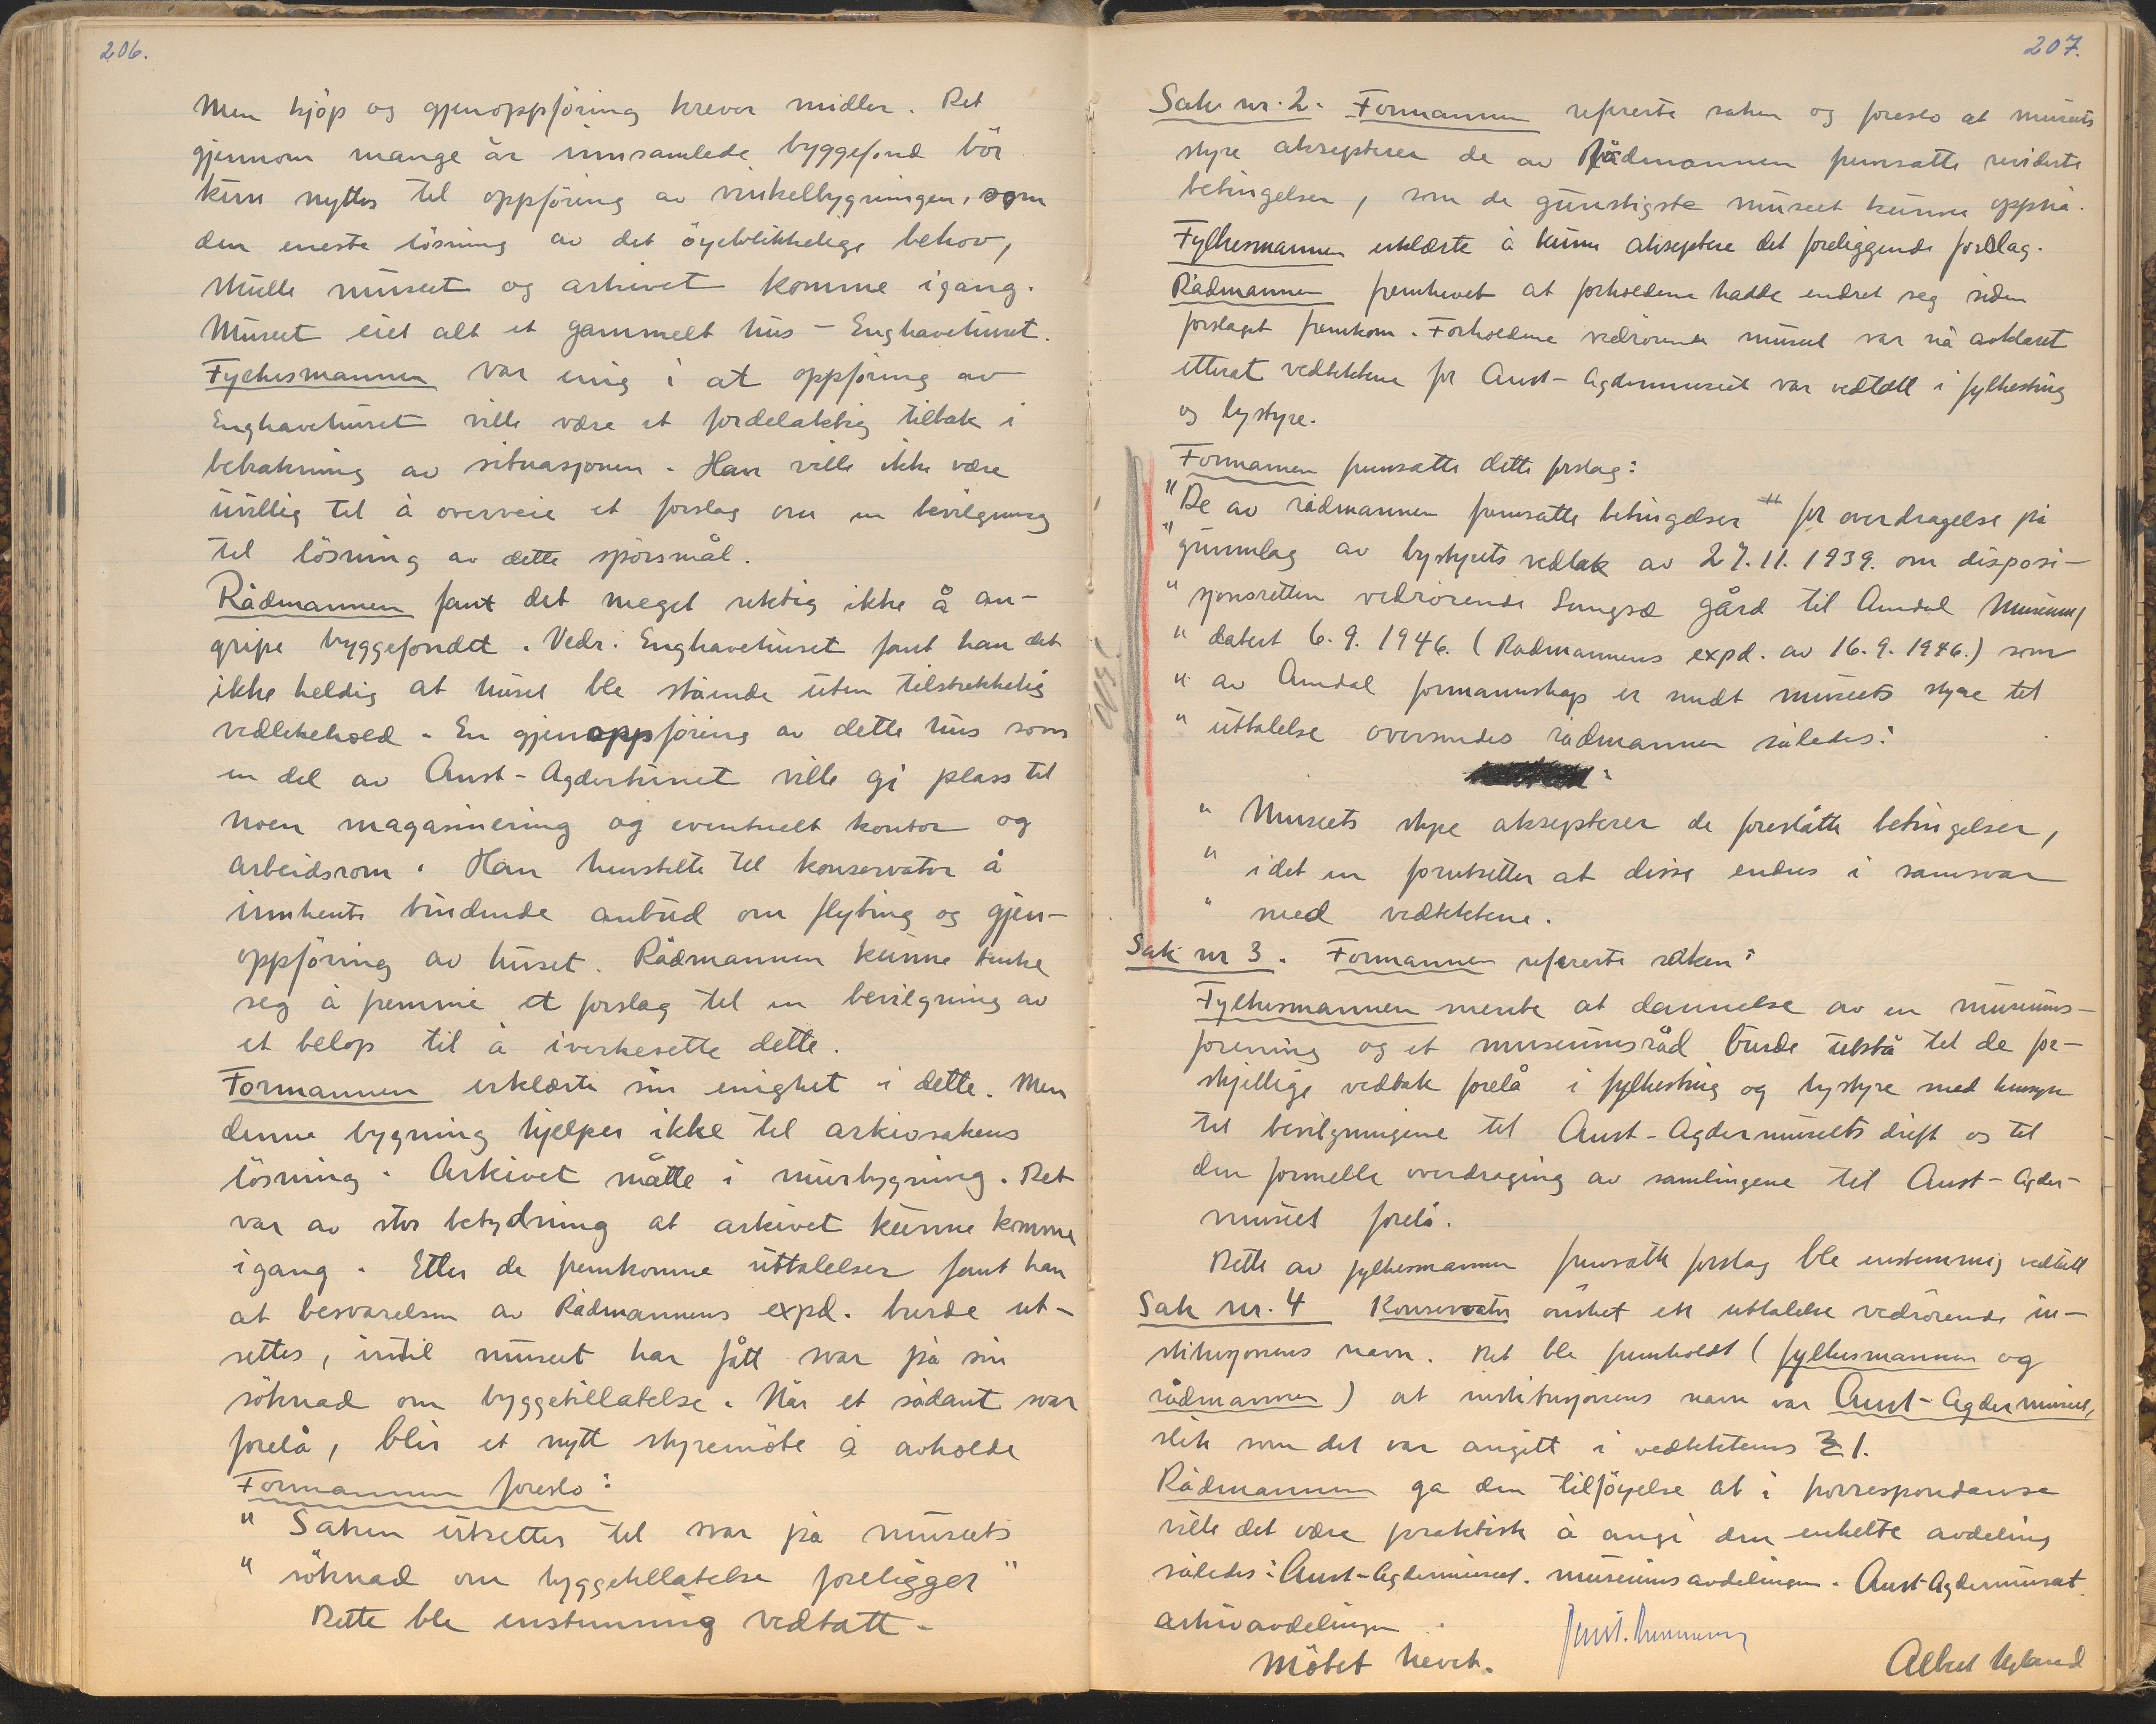 206.
Men kjöp og gjenoppföring krever midler. Det
gjennom mange år innsamlede byggefond bör
kun nyttes til oppföring av vinkelbygningen, som
den eneste lösning av det öyeblikkelige behov,
skulle museet og arkivet komme igang.
Museet eiet alt et gammelt hus - Enghavehuset.
Fylkesmannen var enig i at oppföring av
Enghavehuset ville være et fordelaktig tiltak i
betraktning av situasjonen. Han ville ikke være
uvillig til å overveie et forslag om en bevilgning
til lösning av dette spörsmål.
Rådmannen fant det meget riktig ikke å an-
gripe byggefondet. Vedr. Enghavehuset fant han det
ikke heldig at huset ble stående uten tilstrekkelig
vedlikehold. En gjenoppföring av dette hus som
en del av Aust-Agdertunet ville gi plass til
noen magasinering og eventuelt kontor og
arbeidsrom. Han henstilte til konservator å
innhente bindende anbud om flytting og gjen-
oppföring av huset. Rådmannen kunne tenke
seg å fremme et forslag til en bevilgning av
et belop til å iverksette dette.
Formannen erklærte sin enighet i dette. Men
denne bygning hjelper ikke til arkivsakens
lösning. Arkivet måtte i murbygning. Det
var av stor betydning at arkivet kunne komme
igang. Etter de fremkomne uttalelser fant han
at besvarelsen av Rådmannens expd. burde ut-
settes, inntil museet har fått svar på sin
söknad om byggetillatelse. Når et sådant svar
forelå, blir et nytt styremöte å avholde
Formannen foreslo:
" Saken utsettes til svar på museets
" söknad om byggetillatelse foreligger "
Dette ble enstemmig vedtatt -
207.
Sak nr. 2. Formannen refererte saken og foreslo at museets
styre aksepterer de av Rådmannen fremsatte reviderte
betingelser, som de gunstigste museet kunne oppnå.
Fylkesmannen erklærte å kunne akseptere det foreliggende forslag.
Rådmannen fremhevet at forholdene hadde endret seg siden
forslaget fremkom. Forholdene vedrörende museet var nå avklaret
etterat vedtektene for Aust-Agdermuseet var vedtatt i fylkesting
og bystyre.
Formannen fremsatte dette forslag:
" De av rådmannen fremsatte betingelser for overdragelse på
" grunnlag av bystyrets vedtak av 27.11.1939. om disposi-
" sjonsretten vedrörende Langsæ gård til Arendal Museum,
" datert 6.9.1946. (Rådmannens expd. av 16.9.1946.) som
" av Arendal formannskap er sendt museets styre til
" uttalelse oversendes rådmannen således:
" Museets styre aksepterer de foreslåtte betingelser,
" idet en forutsetter at disse endres i samsvar
" med vedtektene.
Sak nr 3. Formannen refererte saken:
Fylkesmannen mente at dannelse av en museums-
forening og et museumsråd burde utstå til de for-
skjellige vedtak forelå i fylkesting og bystyre med hensyn
til bevilgningene til Aust-Agdermuseets drift og til
den formelle overdraging av samlingene til Aust-Agder-
museet forelå.
Dette av fylkesmannen fremsatte forslag ble enstemmig vedtatt
Sak nr. 4 Konservator önsket en uttalelse vedrörende in-
stitusjonens navn. Det ble fremholdt (fylkesmannen og
rådmannen) at institusjonens navn var Aust-Agdermuseet,
slik som det var angitt i vedtektenes § 1.
Rådmannen ga den tilföyelse at i korrespondanse
ville det være praktisk å angi den enkelte avdeling
således: Aust-Agdermuseet. museumsavdelingen. Aust-Agdermuseet.
arkivavdelingen
Mötet hevet.
Albert Ugland